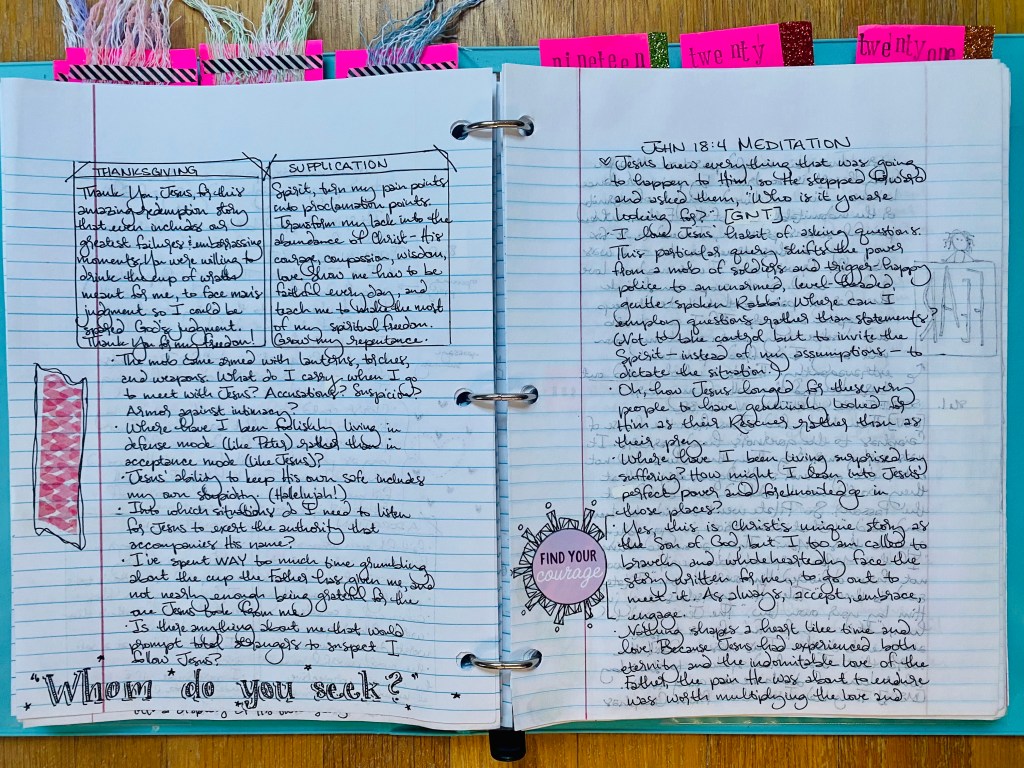 nineteen
twenty
twenty one
THANKSGIVING
Thank You, Jesus, for this
amazing redemption story
that even includes our
greatest failures & embarrassing
moments. You were willing to
drink the cup of wrath
meant for me, to face man's
judgment so I could be
spared God's judgment.
Thank You for my freedom!
SUPPLICATION
Spirit, turn my pain points
into proclamation points.
Transform my lack into the
abundance of Christ - His
courage, compassion, wisdom,
love. Show me how to be
faithful everyday, and
teach me to make the most
of my spiritual freedom.
Grow my repentance.
• The mob came armed with lanterns, torches,
and weapons. What do I carry when I go
to meet with Jesus? Accusations? Suspicion?
Armor against intimacy?
• Where have I been foolishly living in
defense mode (like Peter) rather than in
acceptance mode (like Jesus)?
• Jesus' ability to keep His own safe includes
my own stupidity. (Hallelujah!)
• Into which situations do I need to listen
for Jesus to exert the authority that
accompanies His name?
• I've spent WAY too much time grumbling
about the cup the Father has given me, and
not nearly enough being grateful for the
one Jesus took from me.
• Is there anything about me that would
prompt total strangers to suspect I
follow Jesus?
"Whom do you seek?"
JOHN 18:4 MEDITATION
♡ Jesus knew everything that was going
to happen to Him, so He stepped forward
and asked them, "Who is it you are
looking for?" [GNT]
• I love Jesus' habit of asking questions.
This particular query shifts the power
from a mob of soldiers and trigger-happy
police to an unarmed, level-headed,
gentle-spoken Rabbi. Where can I
employ questions rather than statements?
(Not to take control but to invite the
Spirit - instead of my assumptions - to
dictate the situation.)
• Oh, how Jesus longed for these very
people to have genuinely looked for
Him as their Restorer rather than as
their prey.
• Where have I been living surprised by
suffering? How might I lean into Jesus'
perfect power and foreknowledge in
those places?
• Yes, this is Christ's unique story as
the Son of God, but I too am called to
bravely and wholeheartedly face the
story written for me, to go out to
meet it. As always, accept, embrace,
engage.
• Nothing shapes a heart like time and
love. Because Jesus had experienced both
eternity and the indomitable love of the
Father, the pain He was about to endure
was worth multiplying the love and
FIND YOUR
courage